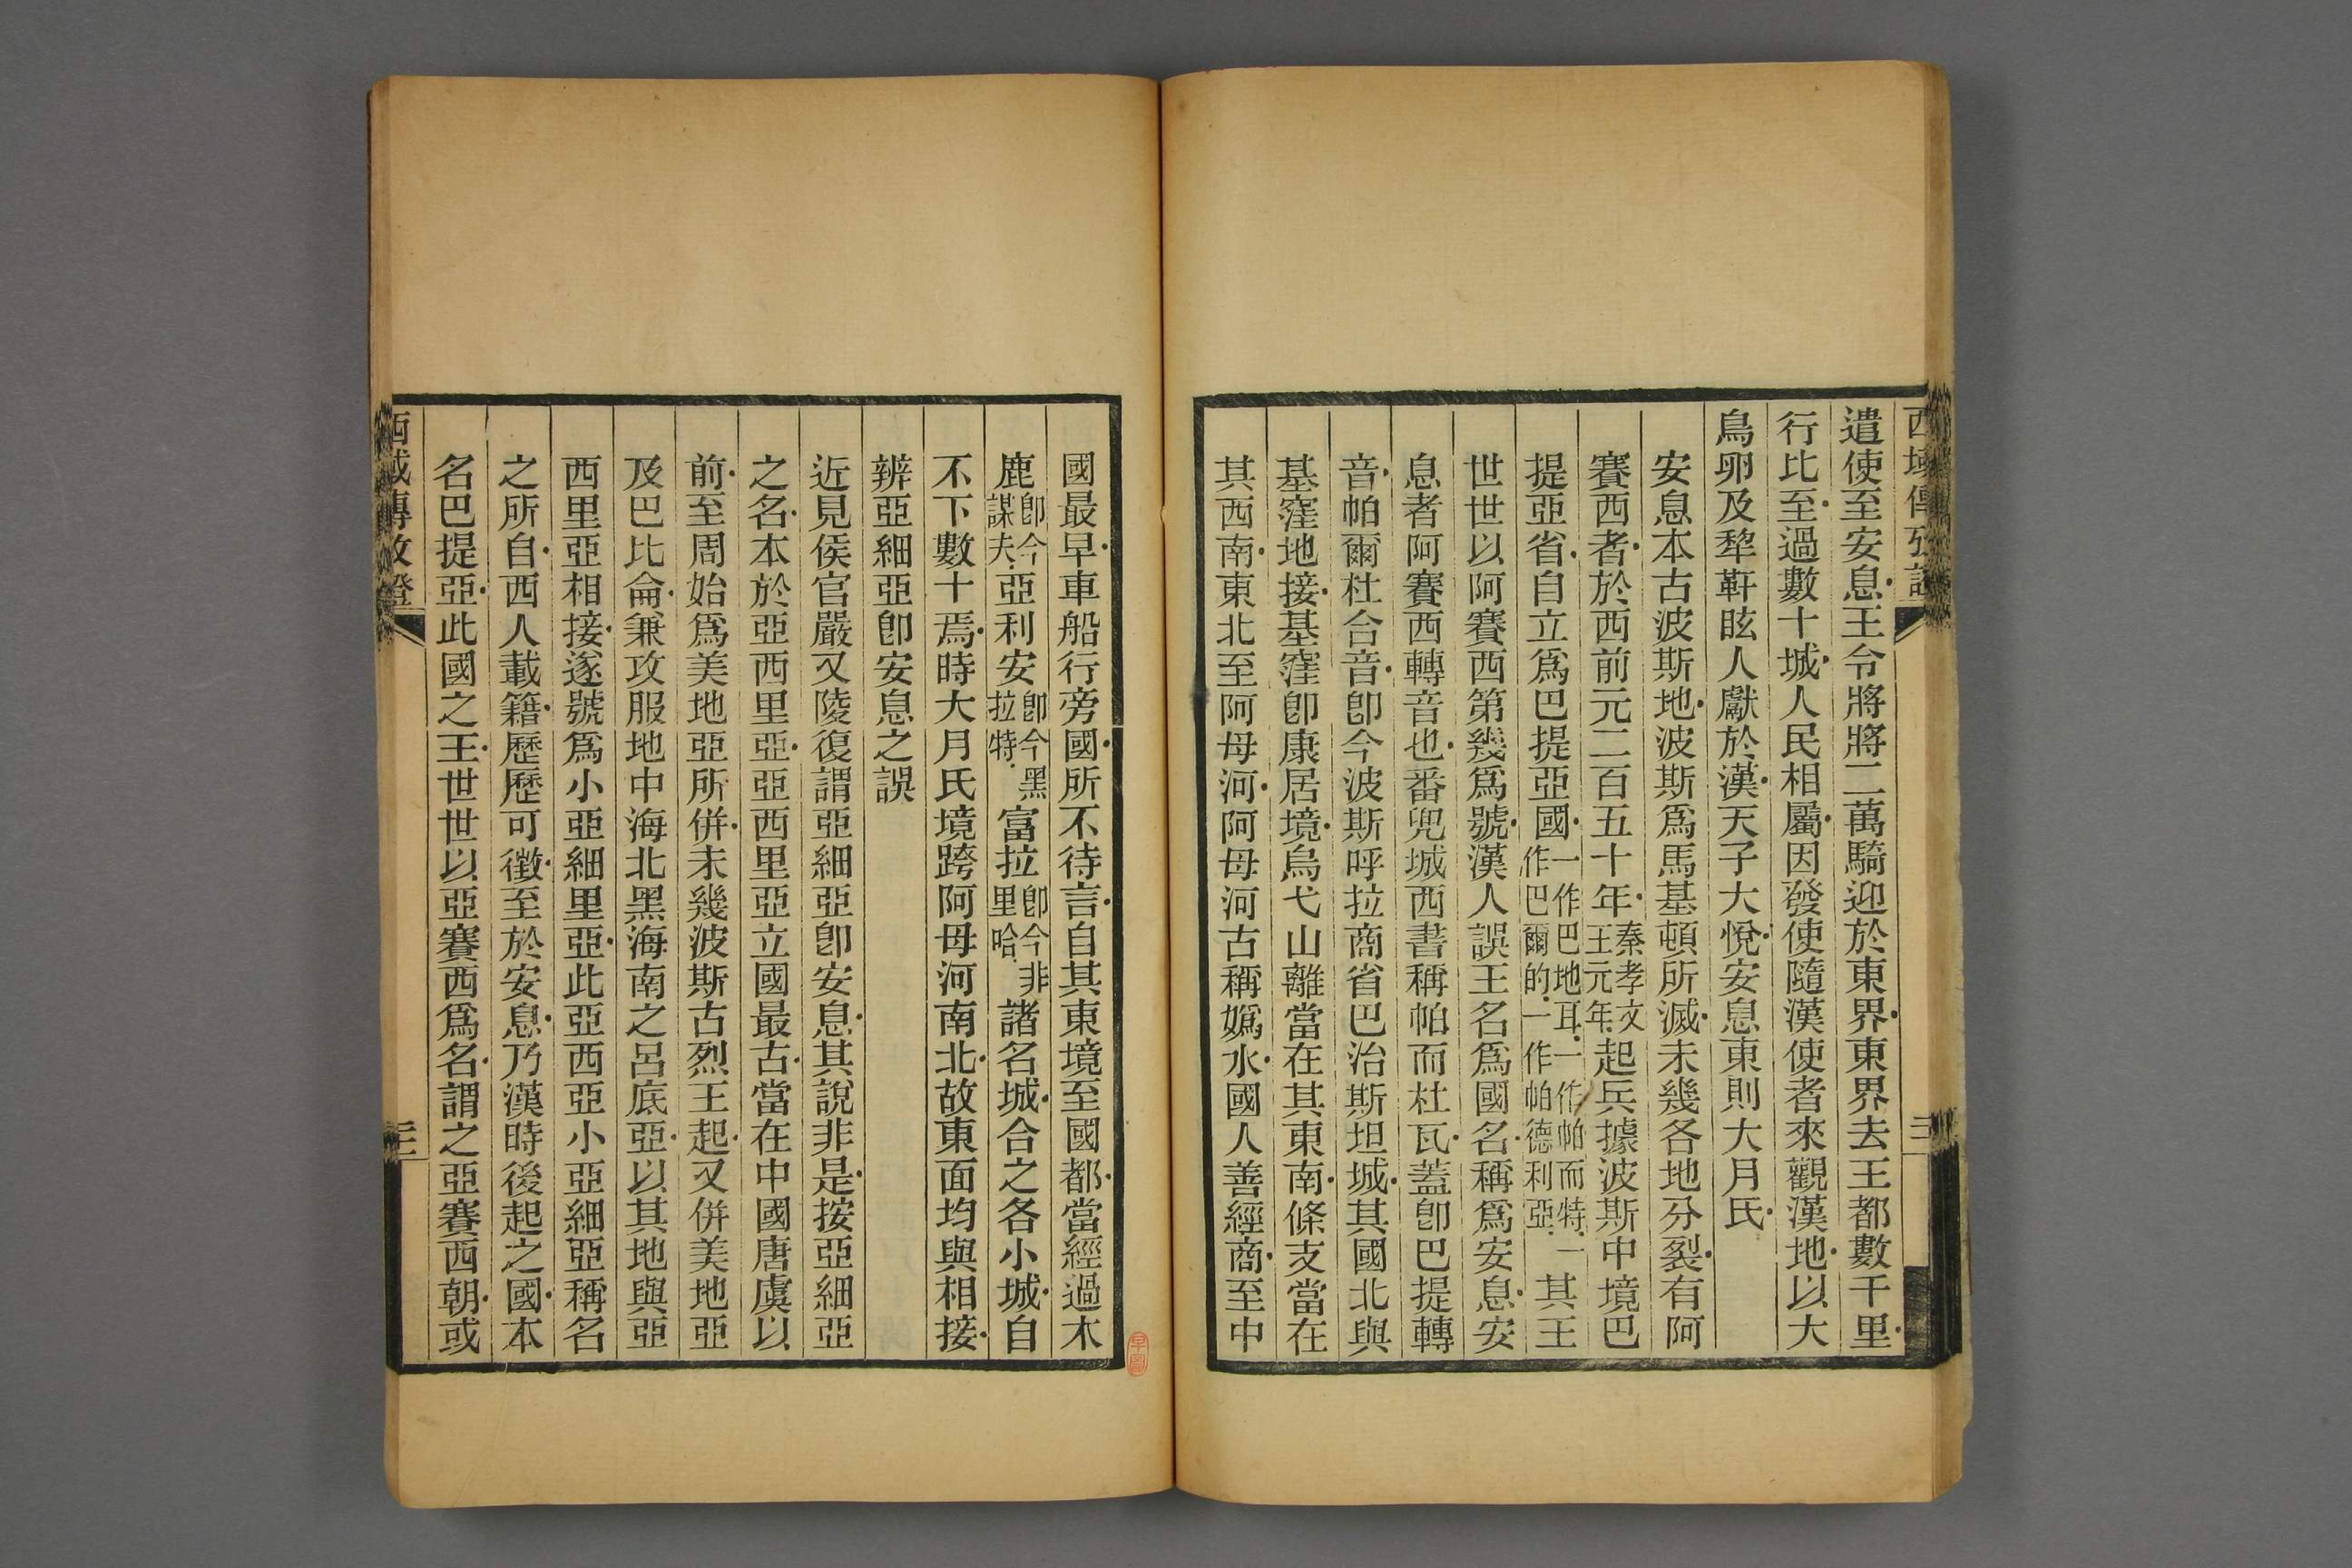 西域傳攷證
遣使至安息王令將將二萬騎迎於東界東界去王都數千里
行比至過數十城人民相屬因發使隨漢使者來觀漢地以大
鳥卵及犂靬眩人獻於漢天子大悅安息東則大月氏
安息本古波斯地波斯爲馬基頓所滅未幾各地分裂有阿
賽西者於西前元二百五十年秦孝文王元年起兵據波斯中境巴
提亞省自立爲巴提亞國一作巴地耳一作帕而特一作巴爾的一作帕德利亞其王
世世以阿賽西第幾爲號漢人誤王名爲國名稱爲安息安
息者阿賽西轉音也番兜城西書稱帕而杜瓦蓋卽巴提轉
音帕爾杜合音卽今波斯呼拉商省巴治斯坦城其國北與
基窪地接基窪卽康居境烏弋山離當在其東南條支當在
其西南東北至阿母河阿母河古稱嬀水國人善經商至中
國最早車船行旁國所不待言自其東境至國都當經過木
鹿卽今謀夫亞利安卽今黑拉特富拉卽今非里哈諸名城合之各小城自
不下數十焉時大月氏境跨阿母河南北故東面均與相接
辨亞細亞卽安息之誤
近見侯官嚴又陵復謂亞細亞卽安息其說非是按亞細亞
之名本於亞西里亞亞西里亞立國最古當在中國唐虞以
前至周始爲美地亞所併未幾波斯古烈王起又併美地亞
及巴比侖兼攻服地中海北黑海南之呂底亞以其地與亞
西里亞相接遂號爲小亞細里亞此亞西亞小亞細亞稱名
之所自西人載籍歷歷可徵至於安息乃漢時後起之國本
名巴提亞此國之王世世以亞賽西爲名謂之亞賽西朝或
西域傳攷證